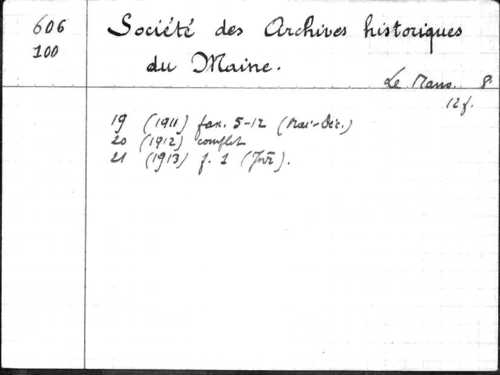 606
100
Société des Archives historiques
du Maine.
Le Mans. 8°
12 f.
19 (1911) fasc. 5-12 (Mai-Déc.)
20 (1912) complet
21 (1913) f. 1 (Jvr).